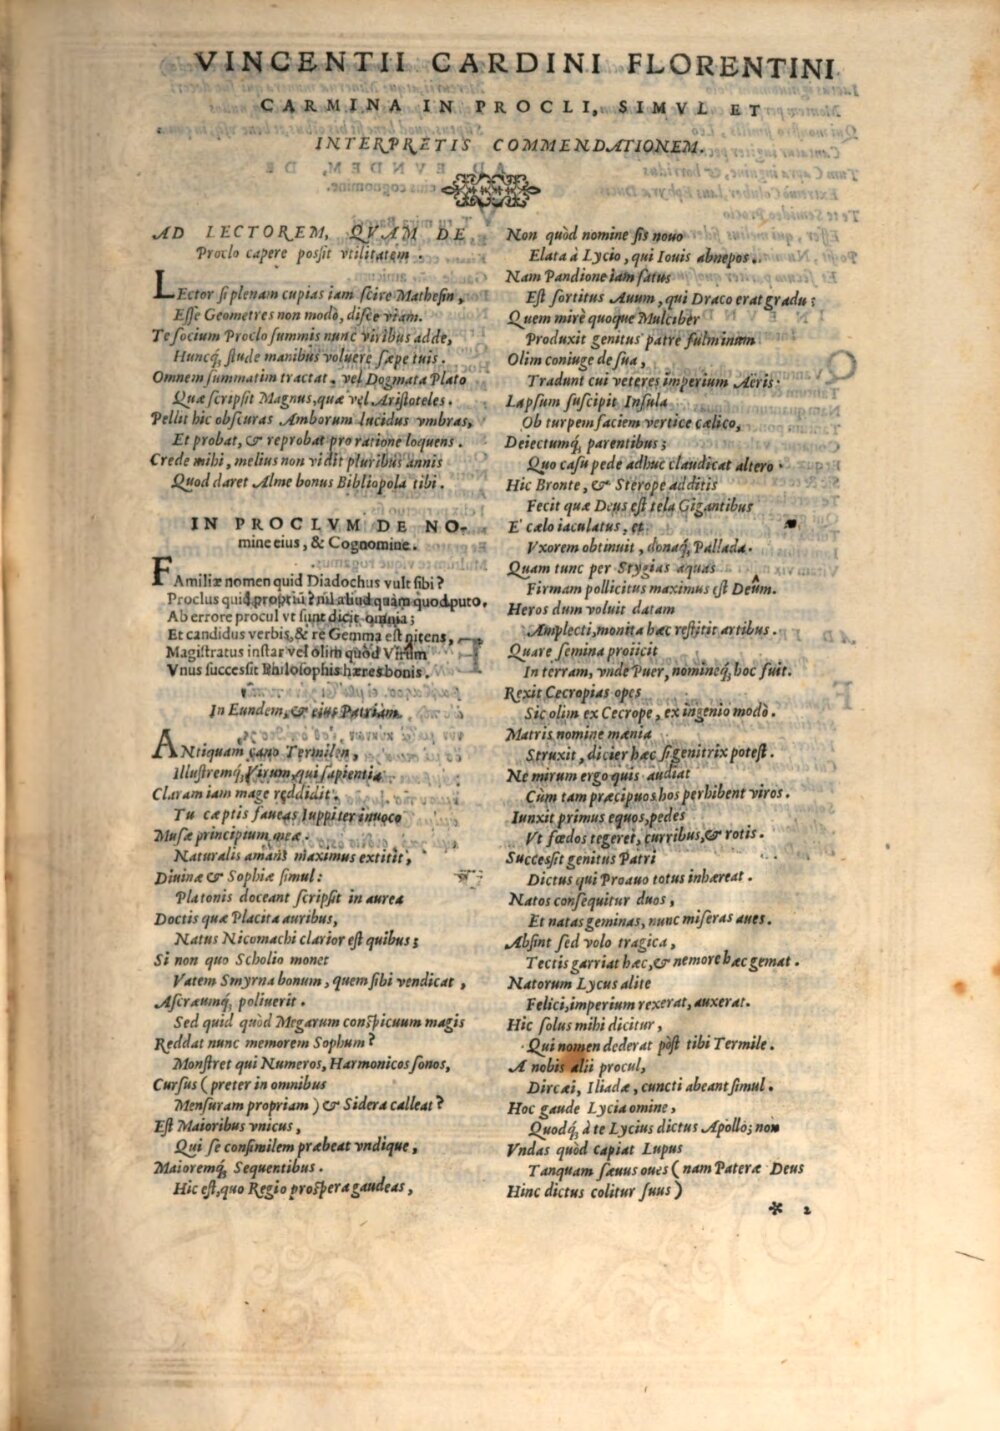 VINCENTII CARDINI FLORENTINI
CARMINA IN PROCLI, SIMVL ET
INTERPRETIS COMMENDATIONEM.
AD LECTOREM, QVAM DE
Proclo capere possit vtilitatem.
LEctor si plenam cupias iam scire Mathesin,
Esse Geometres non modò, disce viam.
Te socium Proclo summis nunc viribus adde,
Huncq́; stude manibus voluere sæpe tuis.
Omnem summatim tractat, vel Dogmata Plato
Quæ scripsit Magnus, quæ vel Aristoteles.
Pellit hic obscuras Amborum lucidus vmbras,
Et probat, & reprobat pro ratione loquens.
Crede mihi, melius non vidit pluribus annis
Quod daret Alme bonus Bibliopola tibi.
IN PROCLVM DE NO-
mine eius, & Cognomine.
FAmiliæ nomen quid Diadochus vult sibi?
Proclus quid propriũ? nil aliud quàm quod puto,
Ab errore procul vt sunt dicit omnia;
Et candidus verbis, & re Gemma est nitens,
Magistratus instar vel olim quòd Virûm
Vnus successit Philosophis hæres bonis.
In Eundem, & eius Patriam.
ANtiquam cano Termilen,
Illustremq́; Virum, qui sapientia
Claram iam mage reddidit.
Tu cæptis faueas Iuppiter inuoco
Musæ principium meæ.
Naturalis amans maximus extitit,
Diuinæ & Sophiæ simul:
Platonis doceant scripsit in aurea
Doctis quæ Placita auribus,
Natus Nicomachi clarior est quibus;
Si non quo Scholio monet
Vatem Smyrna bonum, quem sibi vendicat,
Ascræumq́; poliuerit.
Sed quid quòd Megarum conspicuum magis
Reddat nunc memorem Sophum?
Monstret qui Numeros, Harmonicos sonos,
Cursus (preter in omnibus
Mensuram propriam) & Sidera calleat?
Est Maioribus vnicus,
Qui se consimilem præbeat vndique,
Maioremq́; Sequentibus.
Hic est, quo Regio prospera gaudeas,
Non quòd nomine sis nouo
Elata à Lycio, qui Iouis abnepos.
Nam Pandione iam satus
Est sortitus Auum, qui Draco erat gradu;
Quem mirè quoque Mulciber
Produxit genitus patre fulminum
Olim coniuge de sua,
Tradunt cui veteres imperium Aëris
Lapsum suscipit Insula
Ob turpem faciem vertice cælico,
Deiectumq́; parentibus;
Quo casu pede adhuc claudicat altero.
Hic Bronte, & Sterope additis
Fecit quæ Deus est tela Gigantibus
E' cælo iaculatus, et
Vxorem obtinuit, donaq́; Pallada.
Quam tunc per Stygias aquas
Firmam pollicitus maximus est Deûm.
Heros dum voluit datam
Amplecti, monita hæc restitit artibus.
Quare semina proiicit
In terram, vnde Puer, nomineq́; hoc fuit.
Rexit Cecropias opes
Sic olim ex Cecrope, ex ingenio modò.
Matris nomine mænia
Struxit, dicier hæc si genitrix potest.
Ne mirum ergo quis audiat
Cùm tam præcipuos hos perhibent viros.
Iunxit primus equos, pedes
Vt fœdos tegeret, curribus, & rotis.
Successit genitus Patri
Dictus qui Proauo totus inhæreat.
Natos consequitur duos,
Et natas geminas, nunc miseras aues.
Absint sed volo tragica,
Tectis garriat hæc, & nemore hæc gemat.
Natorum Lycus alite
Felici, imperium rexerat, auxerat.
Hic solus mihi dicitur,
Qui nomen dederat pòst tibi Termile.
A nobis alii procul,
Dircæi, Iliadæ, cuncti abeant simul.
Hoc gaude Lycia omine,
Quodq́; à te Lycius dictus Apollo; non
Vndas quòd capiat Lupus
Tanquam sæuus oues (nam Pateræ Deus
Hinc dictus colitur suus)
* 2